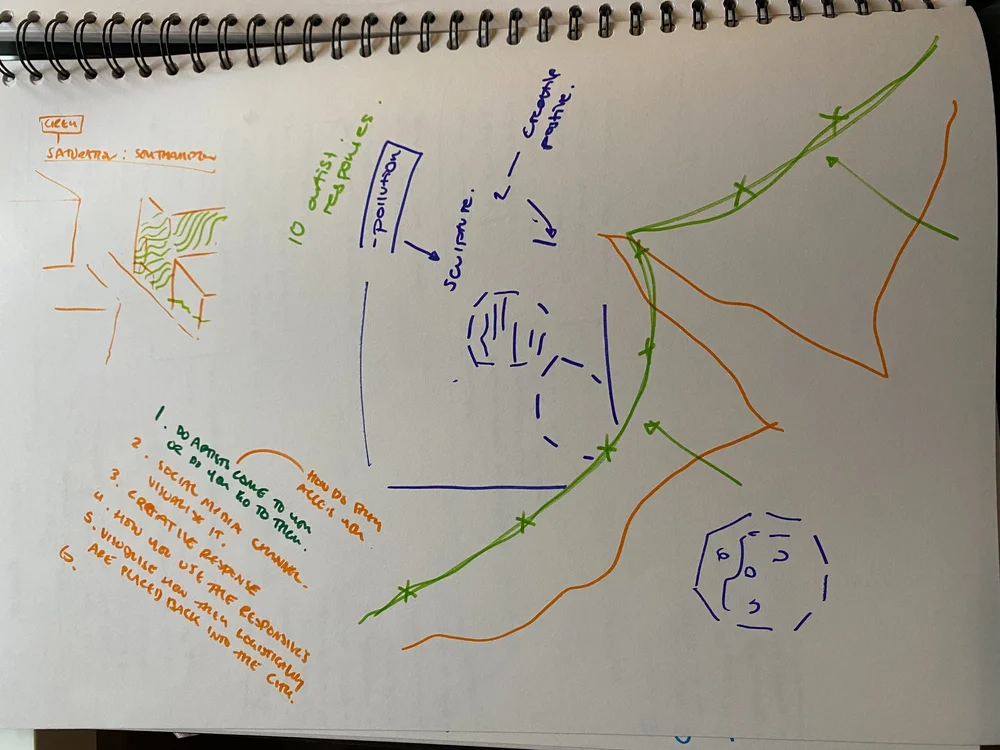 SATURATION : SOUTHAMPTON
10 artist
responses.
-pollution
Sculpture.
2 — creative
positive.
1. DO ARTISTS COME TO YOU
OR DO YOU GO TO THEM.
HOW DO THEY
ACCESS YOU
2. SOCIAL MEDIA CHANNEL -
VISUALISE IT.
3. CREATIVE RESPONSE
4. HOW YOU USE THE RESPONSES
5. VISUALISE HOW THEY LOGISTICALLY
ARE PLACED BACK INTO THE CITY.
6.